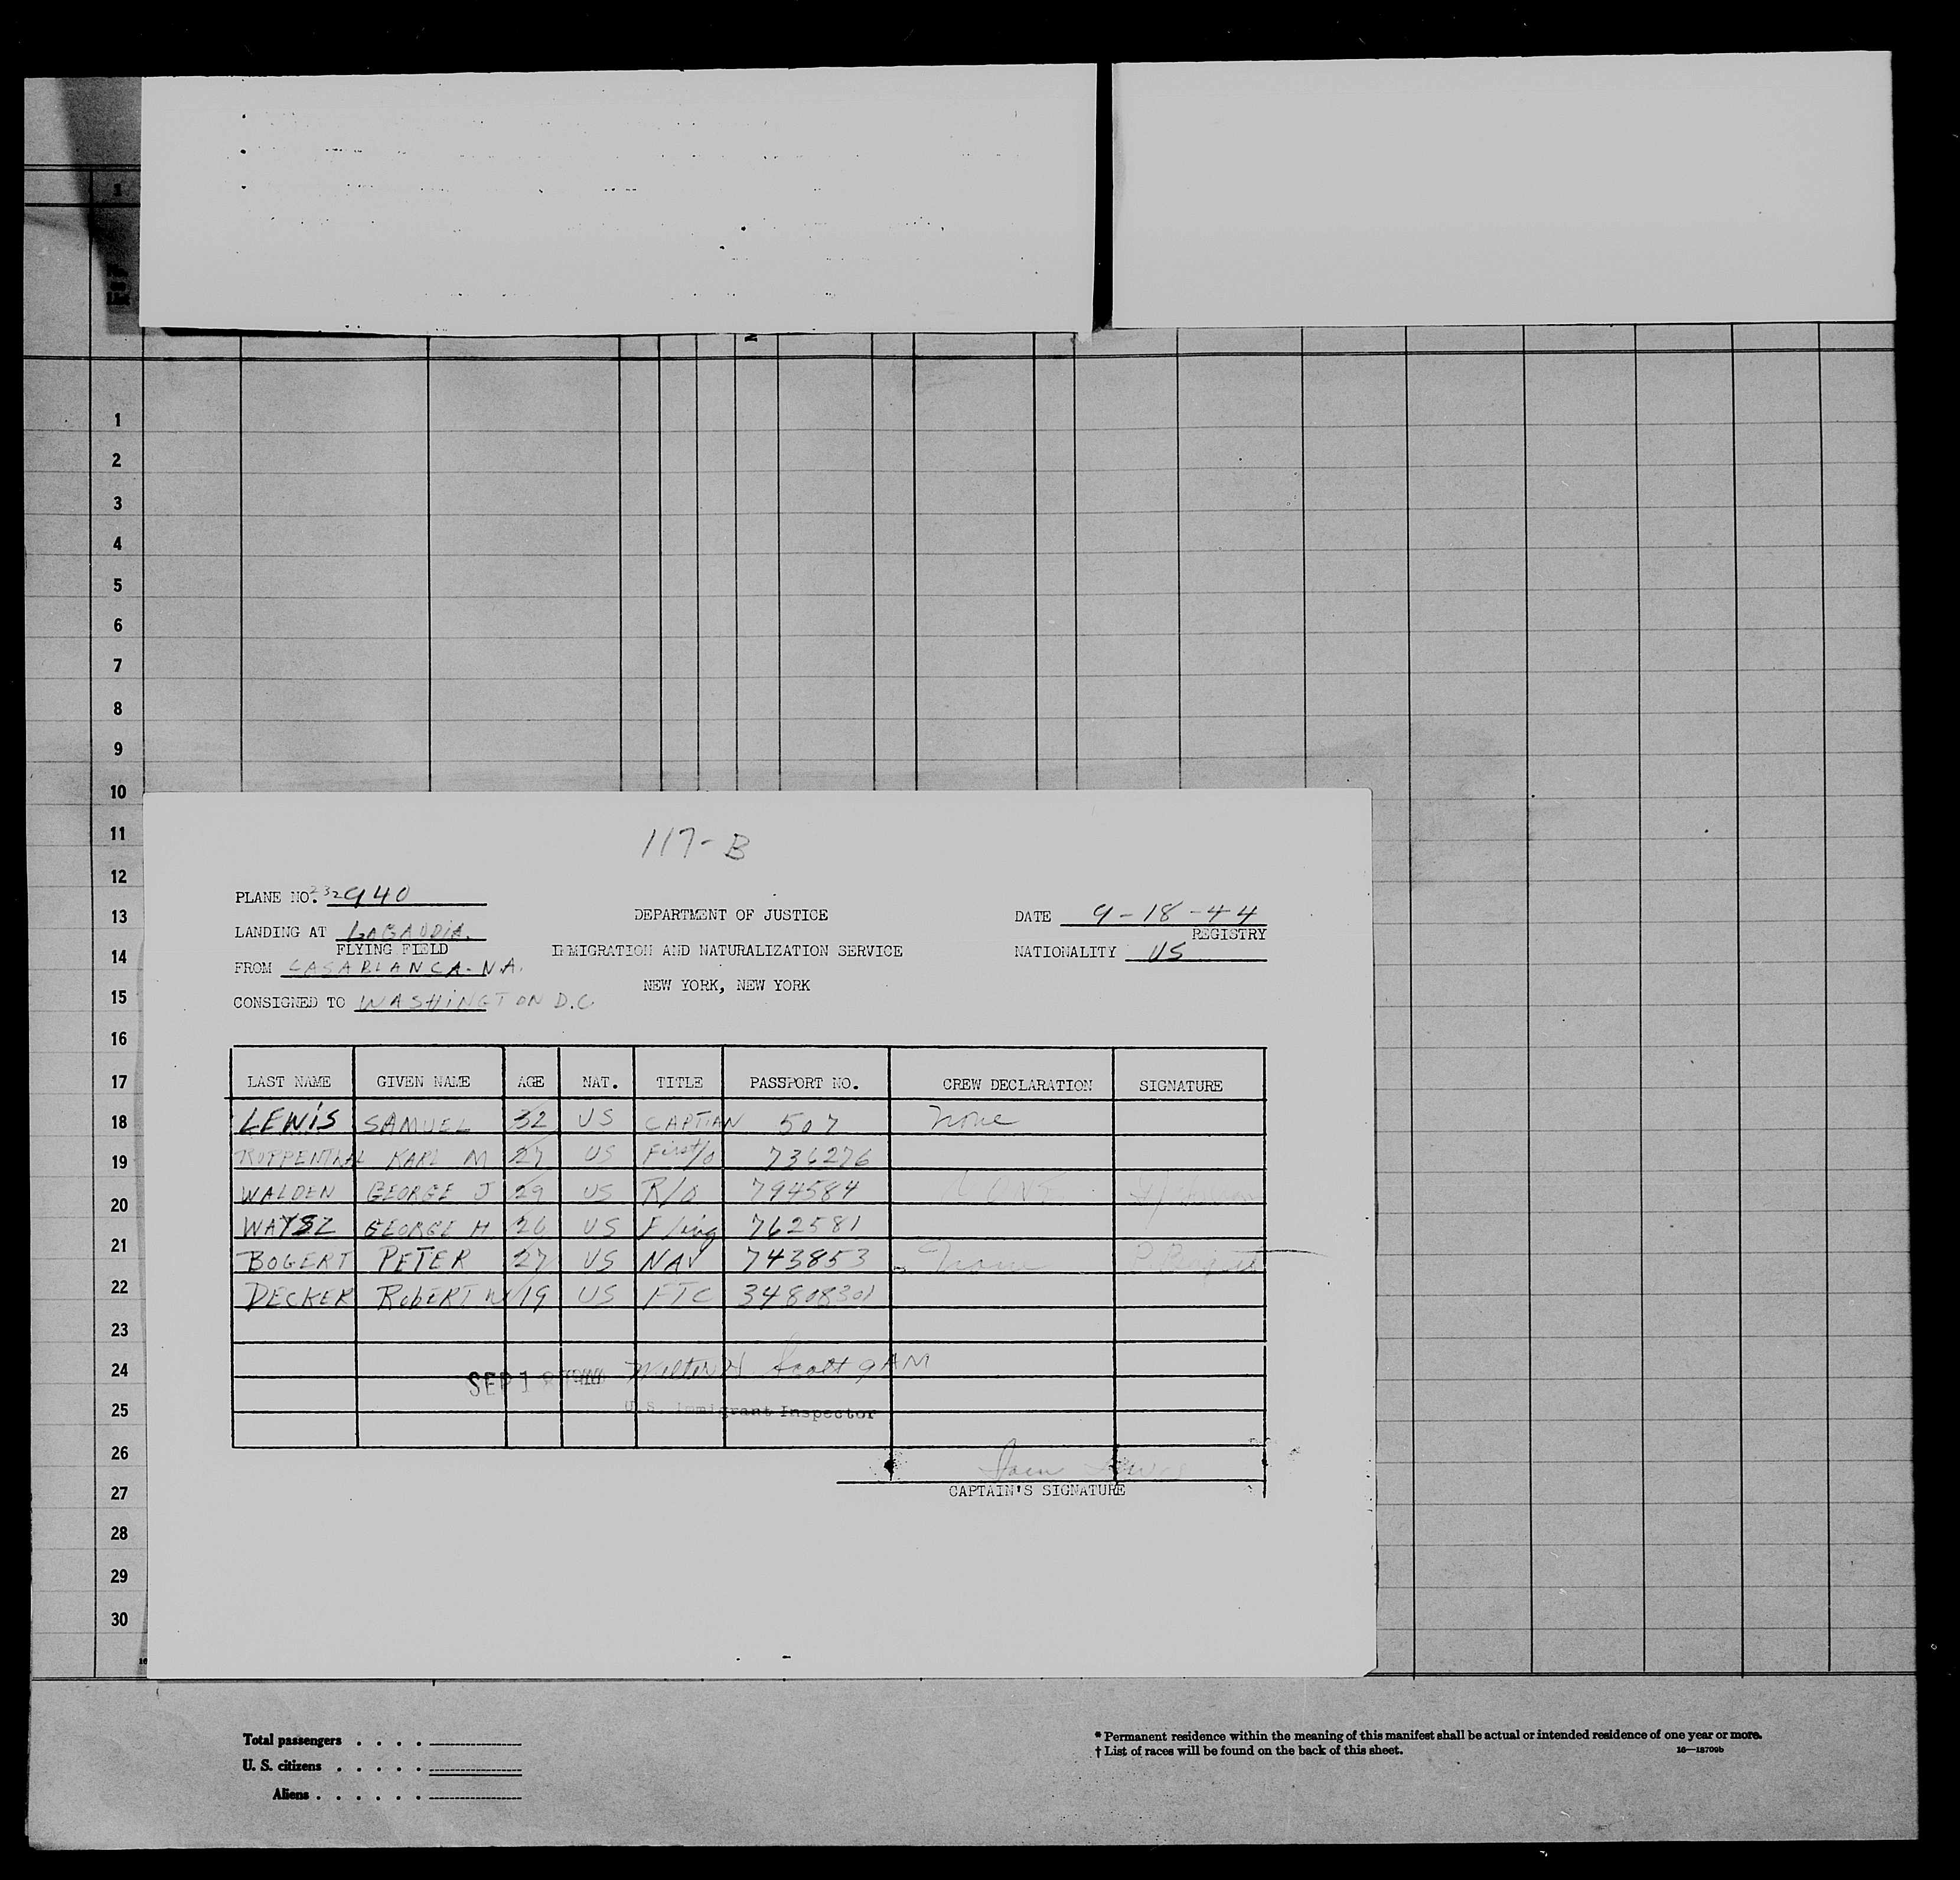 1
1
2
3
4
5
6
7
8
9
10
11
12
13
14
15
16
17
18
19
20
21
22
23
24
25
26
27
28
29
30
117-B
PLANE NO. 232940
LANDING AT LAGAUDIA.
FLYING FIELD
FROM CASABLANCA. N.A.
CONSIGNED TO WASHINGTON D.C.
DEPARTMENT OF JUSTICE
IMMIGRATION AND NATURALIZATION SERVICE
NEW YORK, NEW YORK
DATE 9-18-44
REGISTRY
NATIONALITY US
LAST NAME GIVEN NAME AGE NAT. TITLE PASSPORT NO. CREW DECLARATION SIGNATURE
LEWIS SAMUEL 32 US CAPTIAN 507 None
RUPPENTHAL KARL M 27 US First/o 736276
WALDEN GEORGE J 29 US R/O 794584 NONE
GEORGE H 26 US F/ing 762581
BOGERT PETER 27 US NAV 743853 None P Bogert
DECKER ROBERT W 19 US FTC 34808301
SEP 1 Scott 9AM
U.S. Immigrant Inspector
Sam Lewis
CAPTAIN'S SIGNATURE
Total passengers
U. S. citizens
Aliens
* Permanent residence within the meaning of this manifest shall be actual or intended residence of one year or more.
† List of races will be found on the back of this sheet.
16—18709b